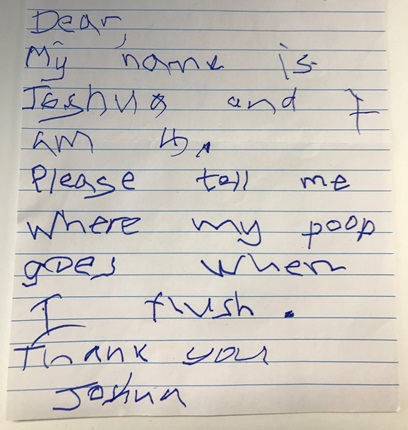 Dear,
My name is
Joshua and I
am 4,
Please tell me
where my poop
goes when
I flush.
Thank you
Joshua